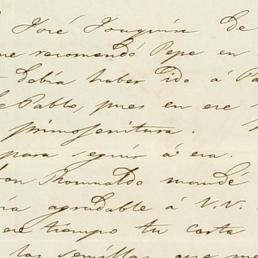 José Joaquín De
me recomendó Pepe en
debía haber ido á Pa
de Pablo, pues en ese
primogenitura.
para seguir á era.
Rhomualdo mandé
agradable á V.V.
ese tiempo tu carta
las semillas que me